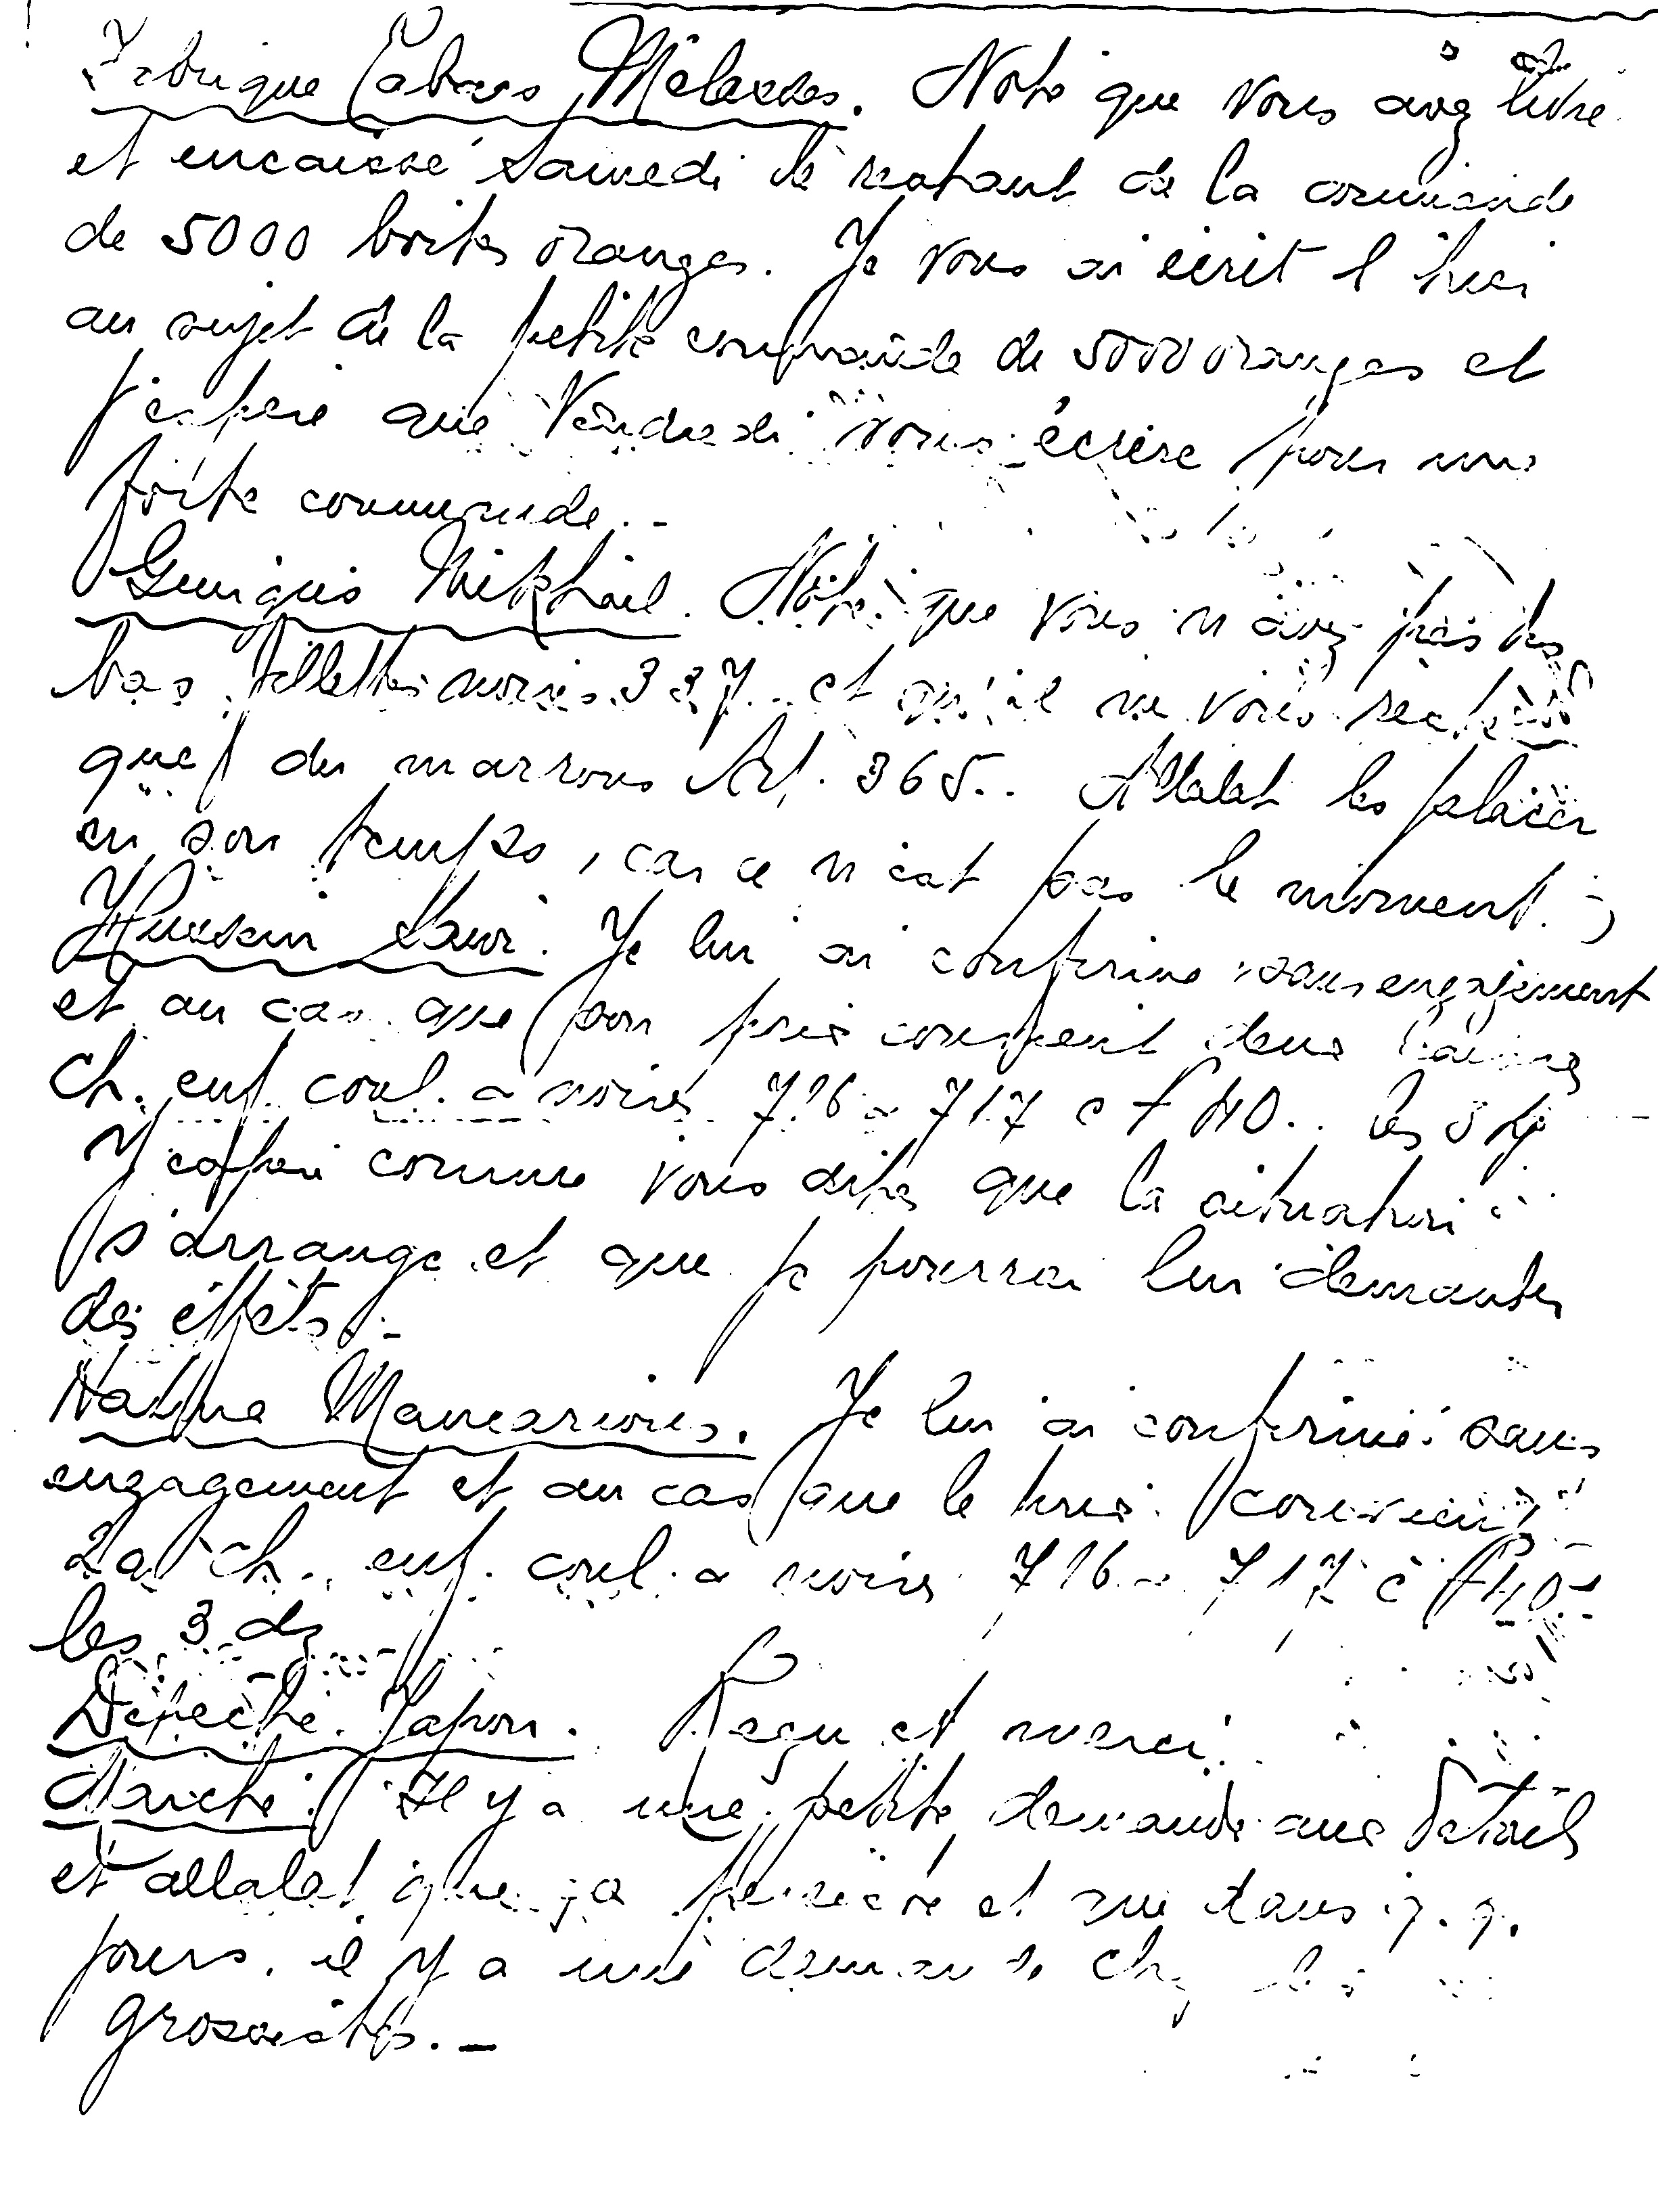 Fabrique Tabacs Melasses. Noté que vous avez livré
et encaissé samedi le restant de la commande
de 5000 boites oranges. Je vous ai écrit hier
au sujet de la petite commande de 5000 oranges et
j'espère que Vendredi vous écrire pour une
forte commande.-
Guirguis Mikhail. Noté que vous n'avez pas des
bas fillettes noires 337. et qu'il ne vous reste
que des marrons Art. 365.. Allalah les placer
en son temps, car ce n'est pas le moment.
Hussein Saur. Je lui ai confirmé sans engagement
et au cas que son prix convient deux caisses
Ch. enf. coul. & noires 716 & 717 à f 40.. les 3 dz
J'espère comme vous dites que la situation
s'arrange et que je pourrai lui demander
des effets.-
Je lui ai confirmé sans
engagement et au cas que le prix convient
2 Ch. enf. coul. & noires 716 & 717 à f 40.-
les 3 dz
Dépêche Japon. Reçu et merci.
Marché. Il y a une petite demande aux Détails
et allalah que ça persévère et que dans q.q.
jours, il y a une demande chez les
grossistes.-